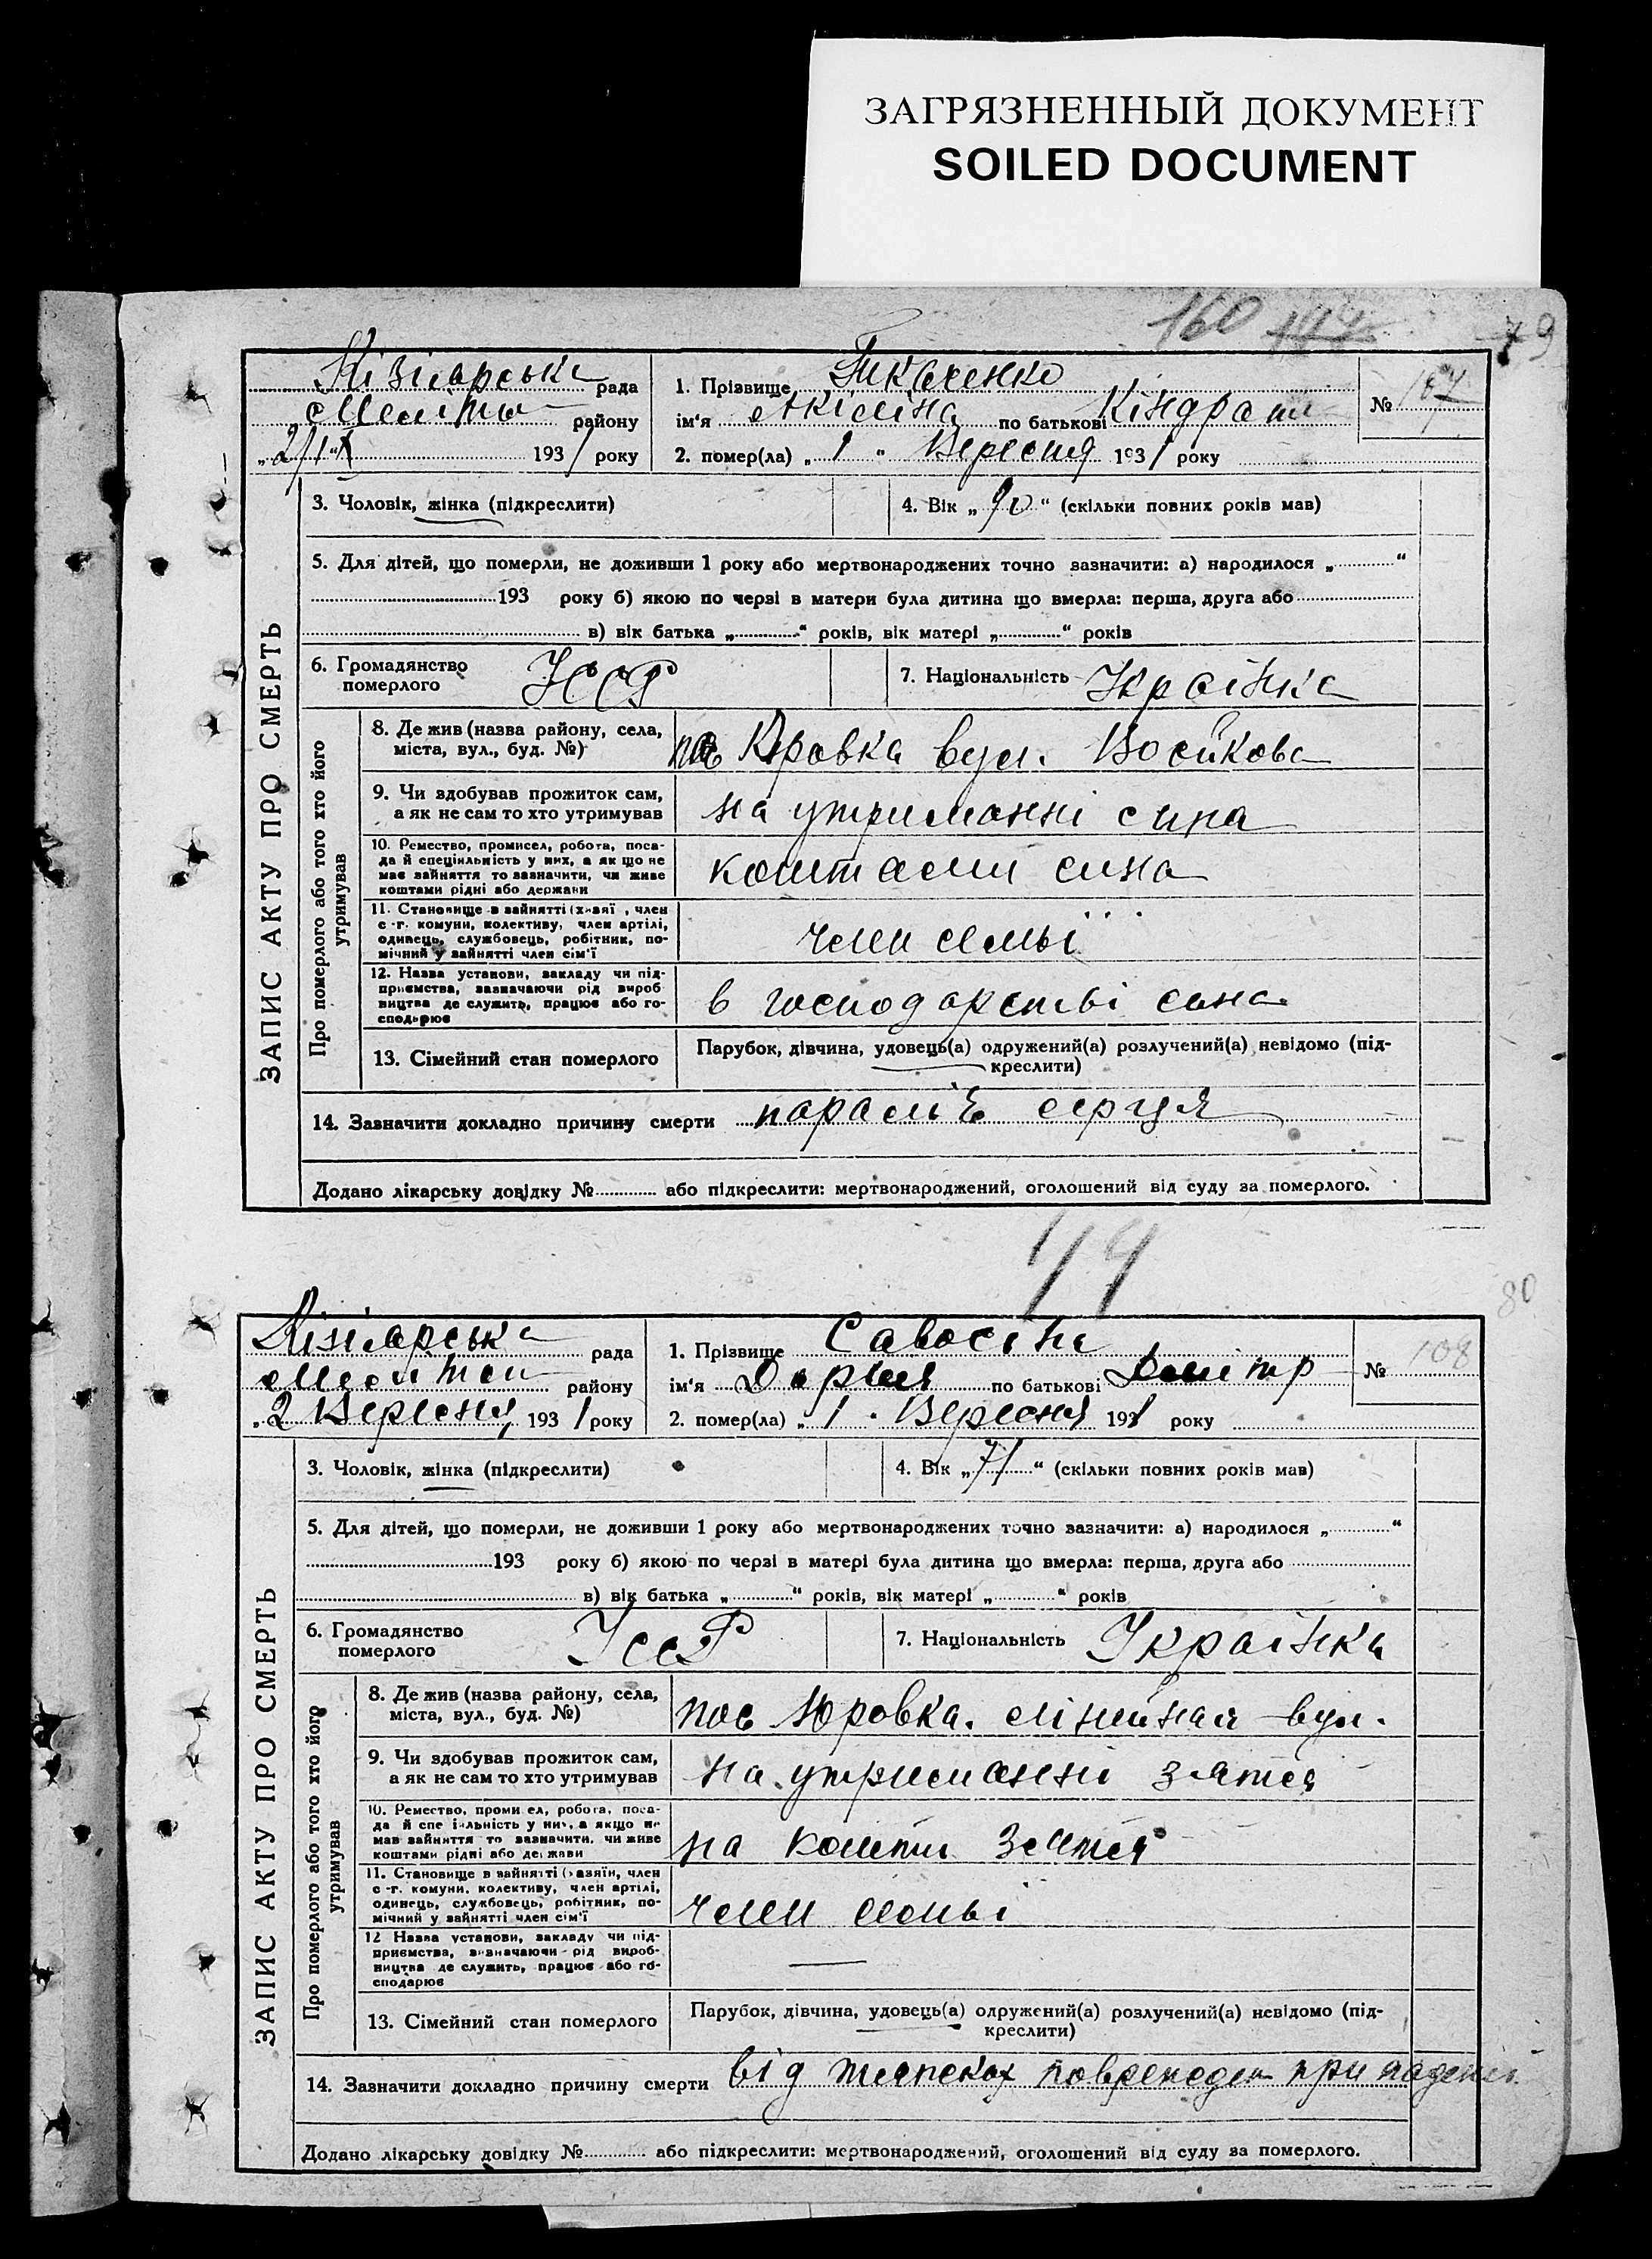 ЗАГРЯЗНЕННЫЙ ДОКУМЕНТ
SOILED DOCUMENT
160
79
Кізіярська рада
Меліто району
„2/ІХ 1931 року
1. Прізвище Ткаченко
ім'я Акіліна по батькові Кіндрат
2. помер(ла) „1" Вересня 1931 року
№ 107
ЗАПИС АКТУ ПРО СМЕРТЬ
3. Чоловік, жінка (підкреслити)
4. Вік „90" (скільки повних років мав)
5. Для дітей, що померли, не доживши 1 року або мертвонароджених точно зазначити: а) народилося „ "
193 року б) якою по черзі в матери була дитина що вмерла: перша, друга або
в) вік батька „ " років, вік матері „ " років
6. Громадянство
померлого
УССР
7. Національність Украінка
Про померлого або того хто його
утримував
8. Де жив (назва району, села,
міста, вул., буд. №)
пос Юровка вул. Войкова
9. Чи здобував прожиток сам,
а як не сам то хто утримував
на утриманні сина
10. Ремество, промисел, робота, поса-
да й спеціяльність у них, а як що не
має зайняття то зазначити, чи живе
коштами рідні або держави
коштами сина
11. Становище в зайнятті (хазяї , член
с -г. комуни, колективу, член артілі,
одинець, службовець, робітник, по-
мічний у зайнятті член сім'ї
член семьї
12. Назва установи, закладу чи під-
приємства, зазначаючи рід вироб
ництва де служить, працює або го-
сподарює
в господарстві сина
13. Сімейний стан померлого
Парубок, дівчина, удовець(а) одружений(а) розлучений(а) невідомо (під-
креслити)
14. Зазначити докладно причину смерти параліч серця
Додано лікарську довідку № або підкреслити: мертвонароджений, оголошений від суду за померлого.
80
Кізіярська рада
Мелітоп району
„2 Вересня 1931 року
1. Прізвище
ім'я Дария по батькові Дмітр
2. помер(ла) „1" Вересня 1931 року
№ 108
ЗАПИС АКТУ ПРО СМЕРТЬ
3. Чоловік, жінка (підкреслити)
4. Вік „71" (скільки повних років мав)
5. Для дітей, що померли, не доживши 1 року або мертвонароджених точно зазначити: а) народилося „ "
193 року б) якою по черзі в матері була дитина що вмерла: перша, друга або
в) вік батька „ " років, вік матері „ " років
6. Громадянство
померлого
УССР
7. Національність Украінка
Про померлого або того хто його
утримував
8. Де жив (назва району, села,
міста, вул., буд. №)
пос Юровка. лінийная вул.
9. Чи здобував прожиток сам,
а як не сам то хто утримував
на утриманні зятя
10. Ремество, проми ел, робота, поса-
да й спе іяльність у них, а якщо не
мав зайняття то зазначити, чи живе
коштами рідні або держави
на кошти зятя
11. Становище в зайнятті (хазяїн, член
с -г. комуни, колективу, член артілі,
одинець, службовець, робітник, по-
мічний у зайнятті член сім'ї
член семьі
12 Назва установи, закладу чи під-
приємства, зазначаючи рід вироб-
ництва де служить, працює або го-
сподарює
—
13. Сімейний стан померлого
Парубок, дівчина, удовець(а) одружений(а) розлучений(а) невідомо (під-
креслити)
14. Зазначити докладно причину смерти від при падені
Додано лікарську довідку № або підкреслити: мертвонароджений, оголошений від суду за померлого.